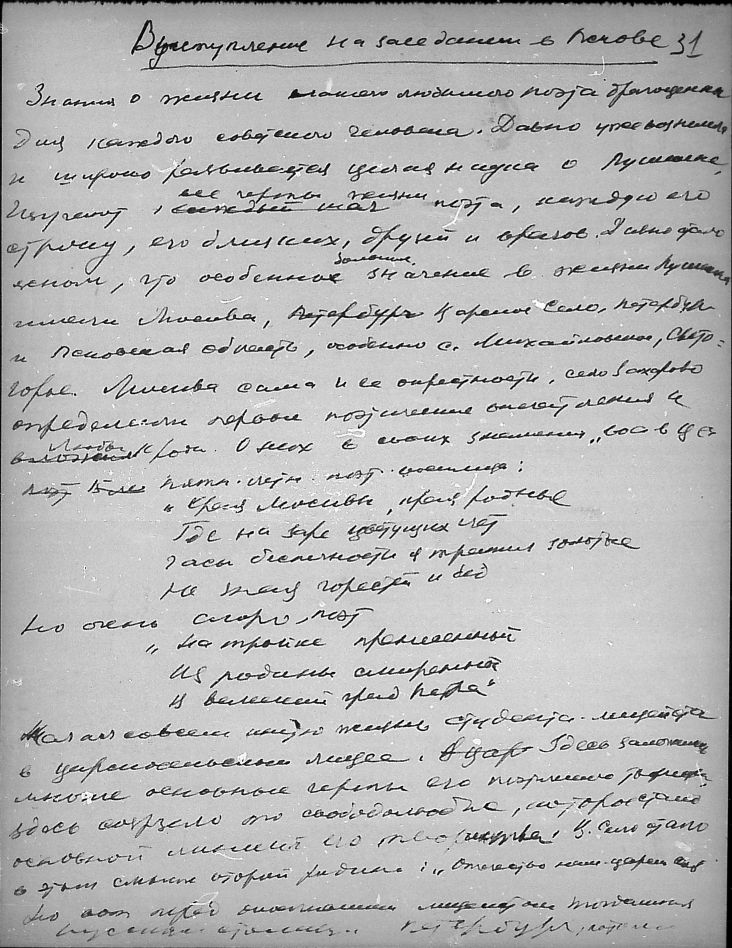 Выступление на заседании в Пскове 31
Знания о жизни нашего любимого поэта драгоценны
для каждого советского человека. Давно уже возникла
и широко развивается целая наука о Пушкине,
Изучают, все черты жизни каждый шаг поэта, каждую его
строку, его близких, друзей и врагов. Давно стало
ясном, что особенное значение в жизни Пушкина
имели Москва, Петербург Царское Село, Петербург
и Псковская область, особенно с. Михайловское, Свято-
горье. Москва сама и ее окрестности, село Захарово
определили первые поэтические впечатления и
любовь к О них в своих
пяти
"Края Москвы, края родные
Где на заре цветущих лет
Часы беспечности я тратил золотые
Не зная горестей и бед
Но очень скоро поэт
"На тройке пренесенный
Из родины смиренной
В великий град Петра"
Начал совсем иную жизнь студента-лицеиста
в царскосельском лицее. В Царс Здесь заложены
многие основные черты его
здесь созрело то свободолюбие, которое стало
основной его творчества. Ц. Село стало
в этом смысле второй родиной: "Отечество нам царск село
Но вот перед окончанием
Петербург,